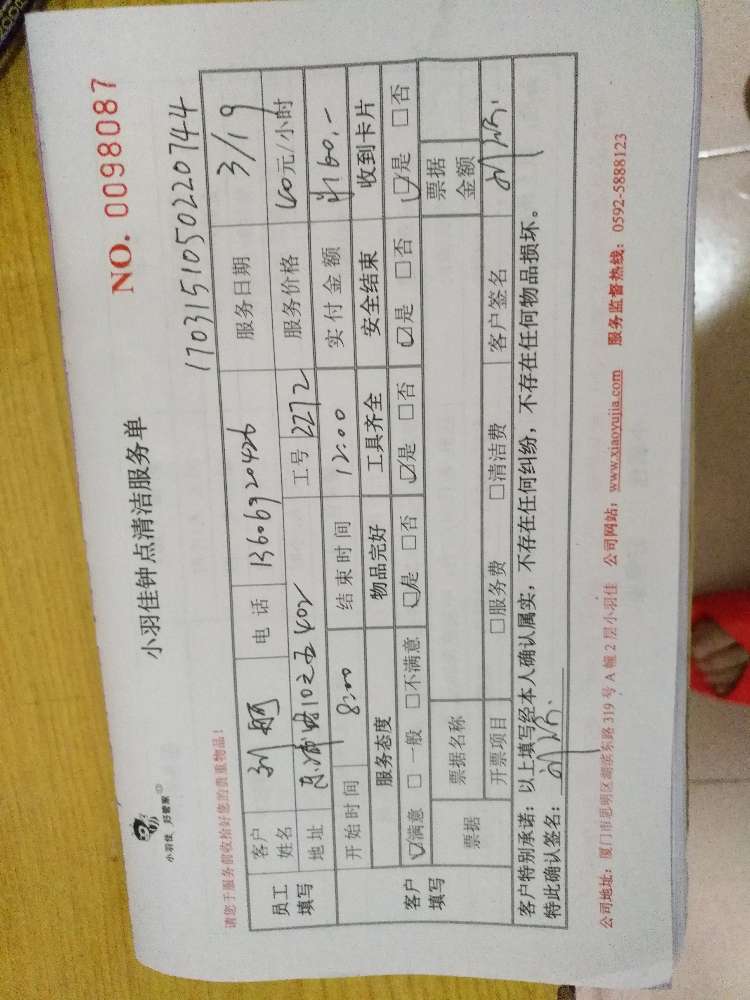 小羽佳 好管家
小羽佳钟点清洁服务单
NO. 0098087
请您于服务前收拾好您的贵重物品！
1703151050220744
员工填写
客户姓名 刘丽 电话 13606920426 服务日期 3/19
地址 东浦路10之五402 工号 2272 服务价格 40元/小时
开始时间 8:00 结束时间 12:00 实付金额 ¥160.-
客户填写
服务态度 物品完好 工具齐全 安全结束 收到卡片
☑满意 □一般 □不满意 ☑是 □否 ☑是 □否 ☑是 □否 ☑是 □否
票据 票据名称 票据金额
开票项目 □服务费 □清洁费 客户签名
客户特别承诺：以上填写经本人确认属实，不存在任何纠纷，不存在任何物品损坏。
特此确认签名：
公司地址：厦门市思明区湖滨东路319号A幢2层小羽佳 公司网站：www.xiaoyujia.com 服务监督热线：0592-5888123